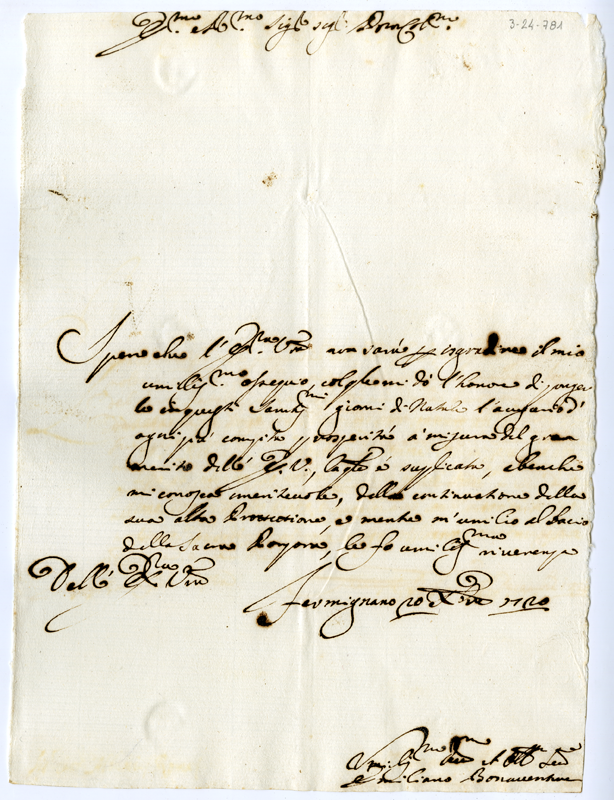 3-24-781
E.mo e R.mo Sig.r Sig.r Pron Col.mo
Spero che l'E.za V.ra non sarà p isgradire il mio
umiliss.mo ossequio, col quale mi dò l'honore di
in questi Santiss.mi giorni di Natale l'
ogni più compita prosperità à misura del gran
merito dell'E.V., la q.le è suplicata, e benche
mi conosca imeritevole, della continuatione della
sua alta Protetione, e mentre m'umilio al bacio
della Sacra Porpora, le fo umiliss.ma riverenza
Dell' E.za V.ra
Fermignano 20 Xbre 1720
Umiliss.mo
Emiliano Bonaventura